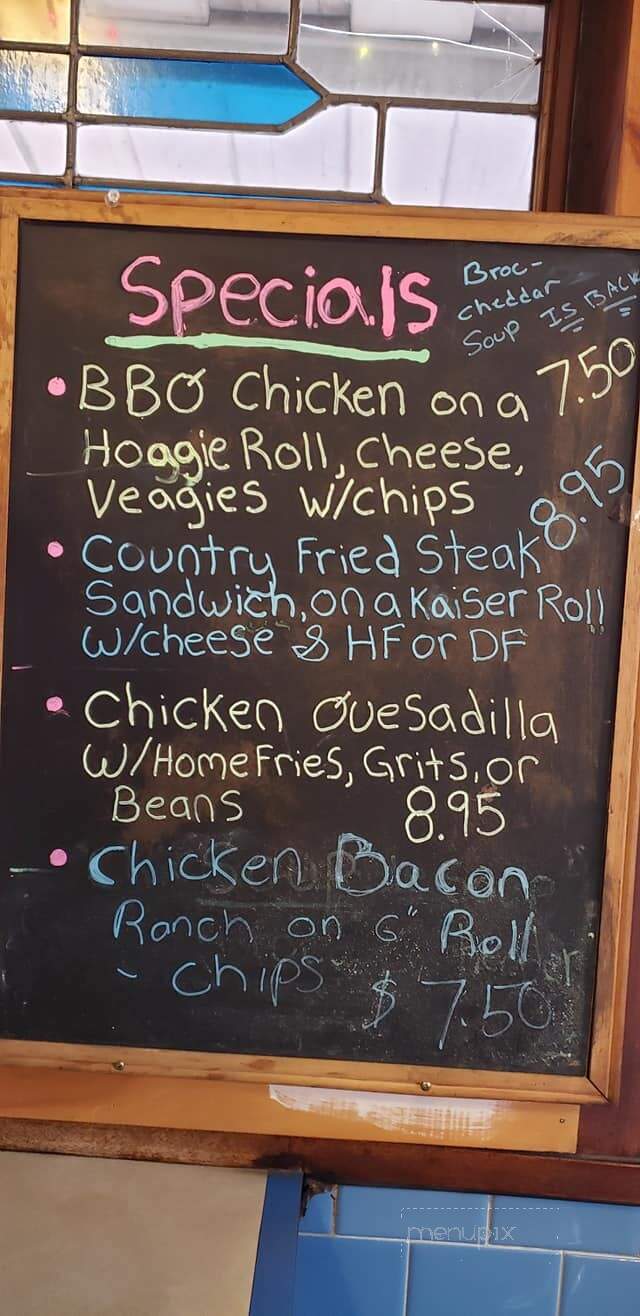 Specials
Broc-
cheddar
Soup IS BACK
BBQ Chicken on a 7.50
Hoggie Roll, Cheese,
Veagies w/chips
Country Fried Steak 8.95
Sandwich, on a Kaiser Roll
w/cheese & HF or DF
Chicken Quesadilla
w/Home Fries, Grits, or
Beans 8.95
Chicken Bacon
Ranch on 6" Roll
- Chips $7.50
menupix